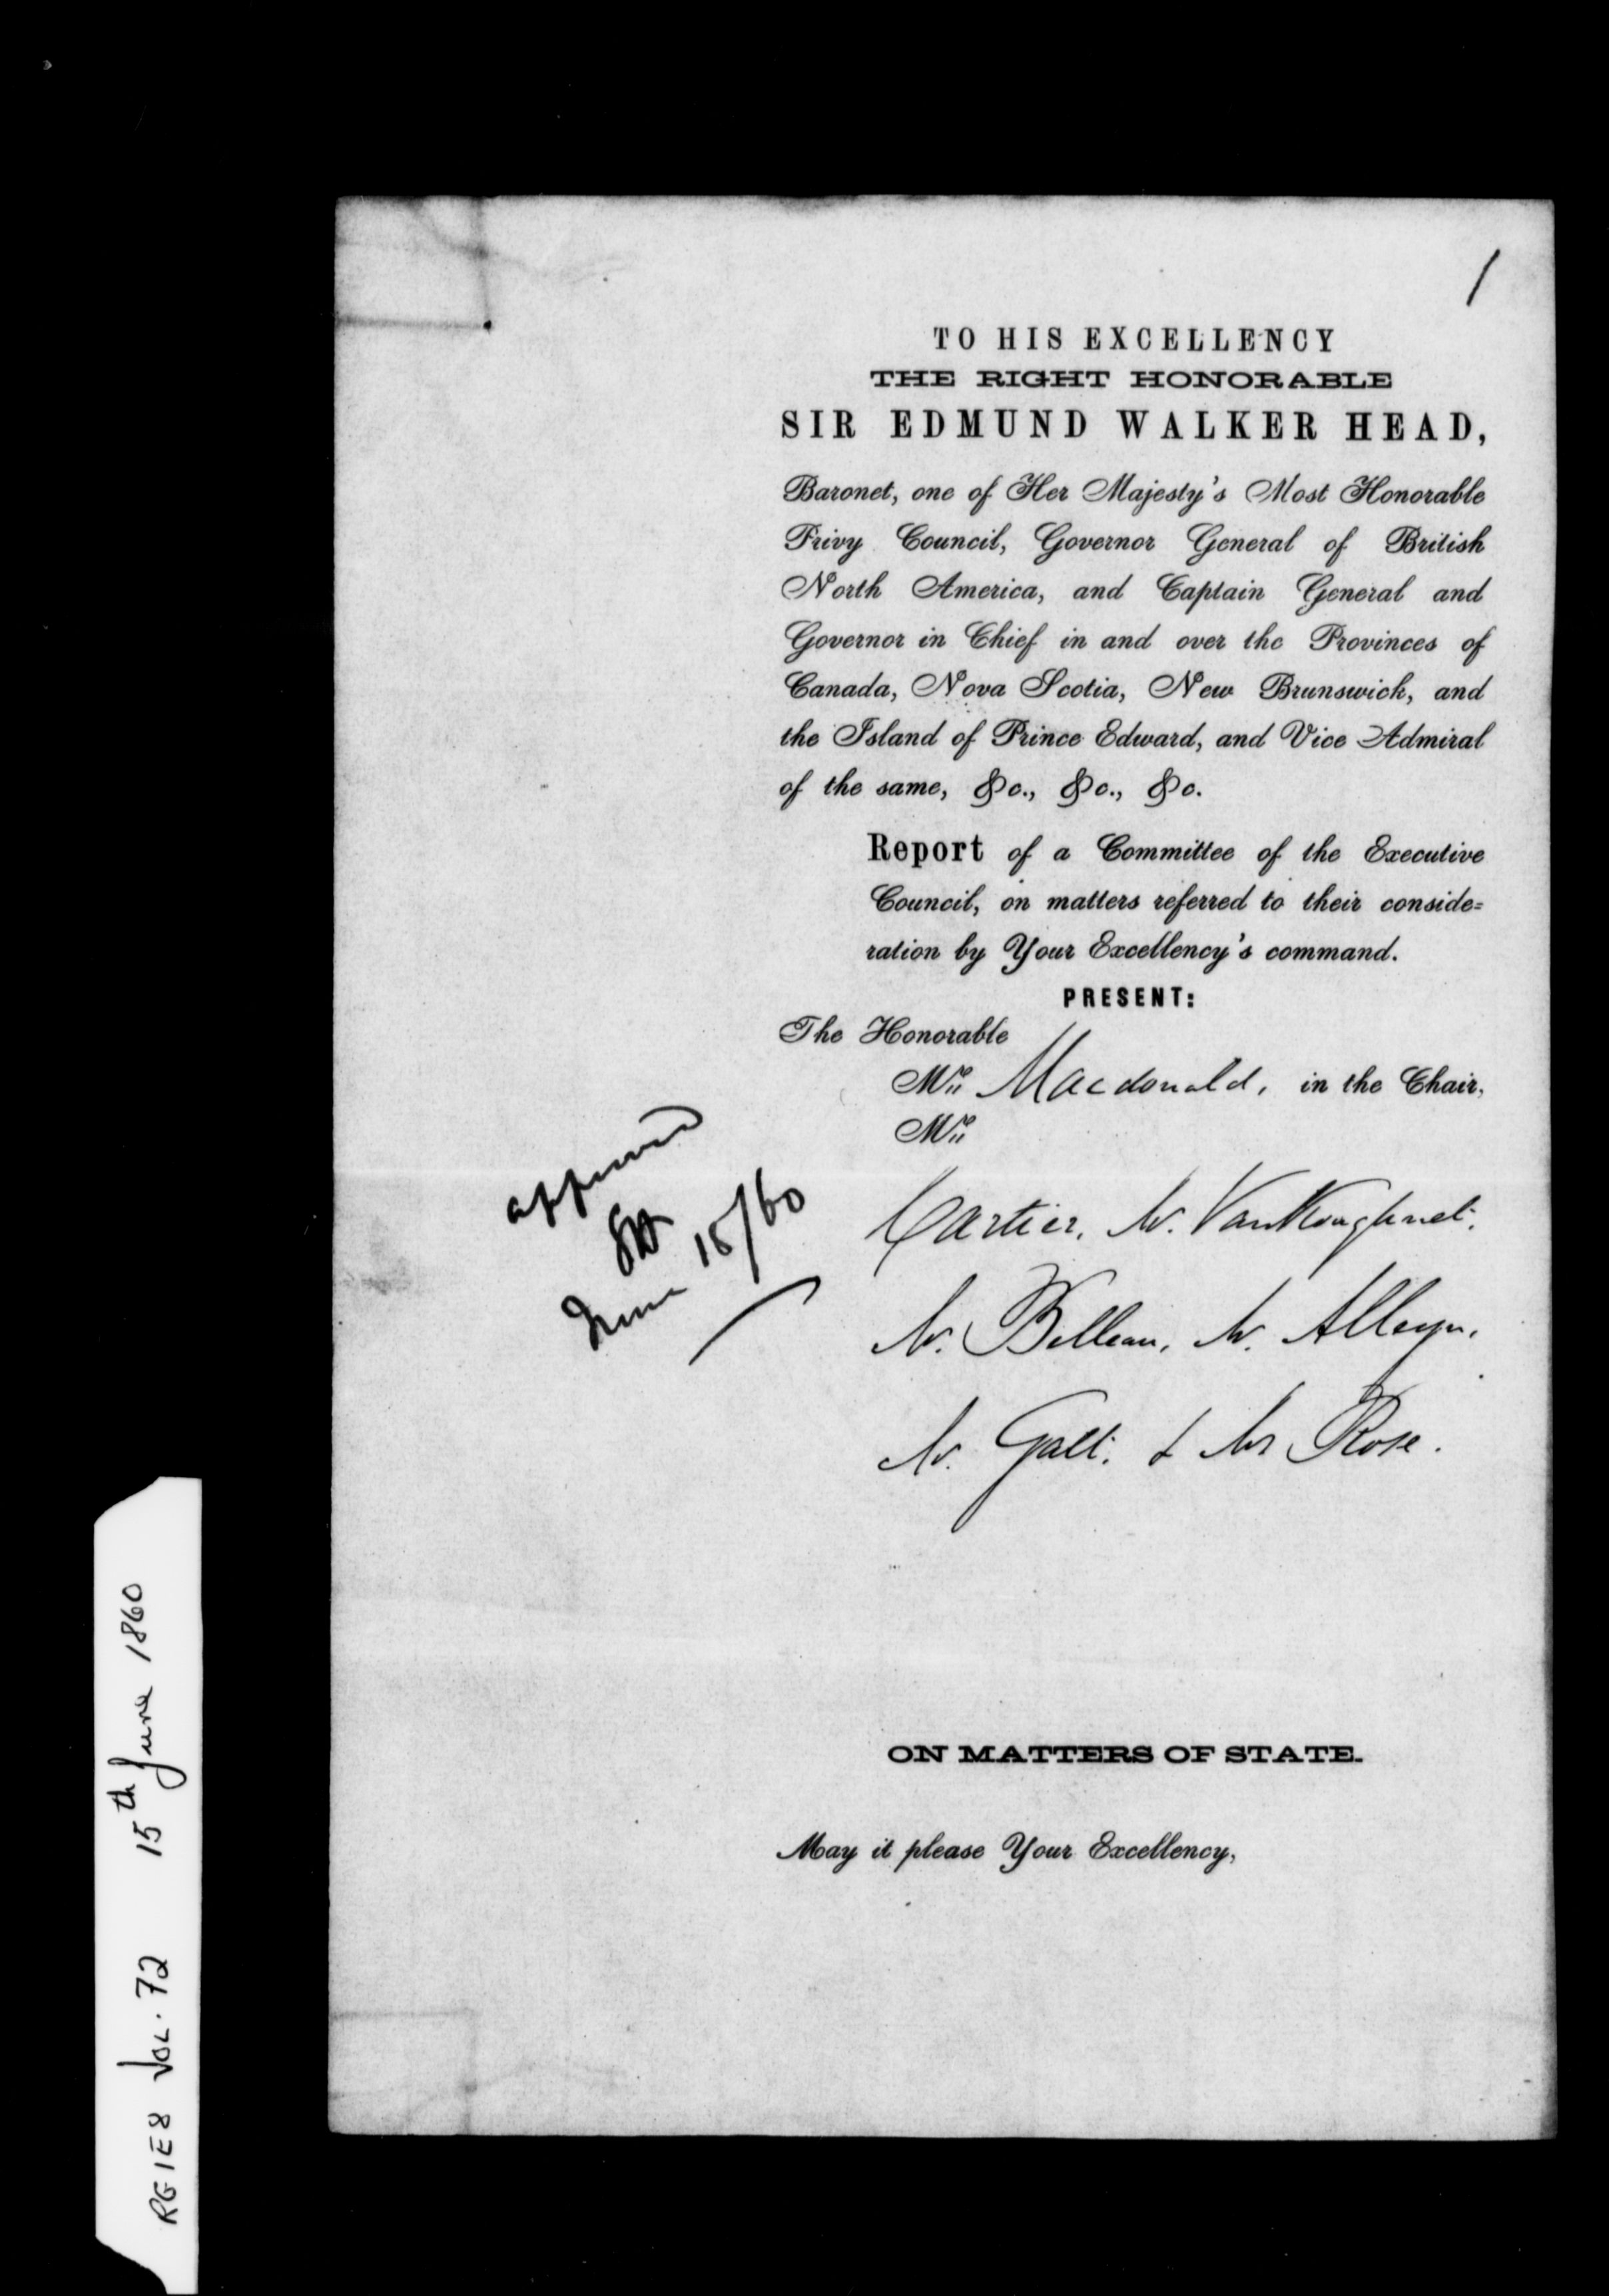 1
TO HIS EXCELLENCY
THE RIGHT HONORABLE
SIR EDMUND WALKER HEAD,
Baronet, one of Her Majesty's Most Honorable
Privy Council, Governor General of British
North America, and Captain General and
Governor in Chief in and over the Provinces of
Canada, Nova Scotia, New Brunswick, and
the Island of Prince Edward, and Vice Admiral
of the same, &c., &c., &c.
Report of a Committee of the Executive
Council, on matters referred to their conside=
ration by Your Excellency's command.
PRESENT:
The Honorable
Mr. Macdonald, in the Chair,
Mr.
Cartier. Mr. VanKoughnet.
Mr. Belleau. Mr. Alleyn.
Mr. Galt. & Mr Rose.
approved
June 15/60
ON MATTERS OF STATE.
May it please Your Excellency,
RG1E8 VOL. 72 15th June 1860